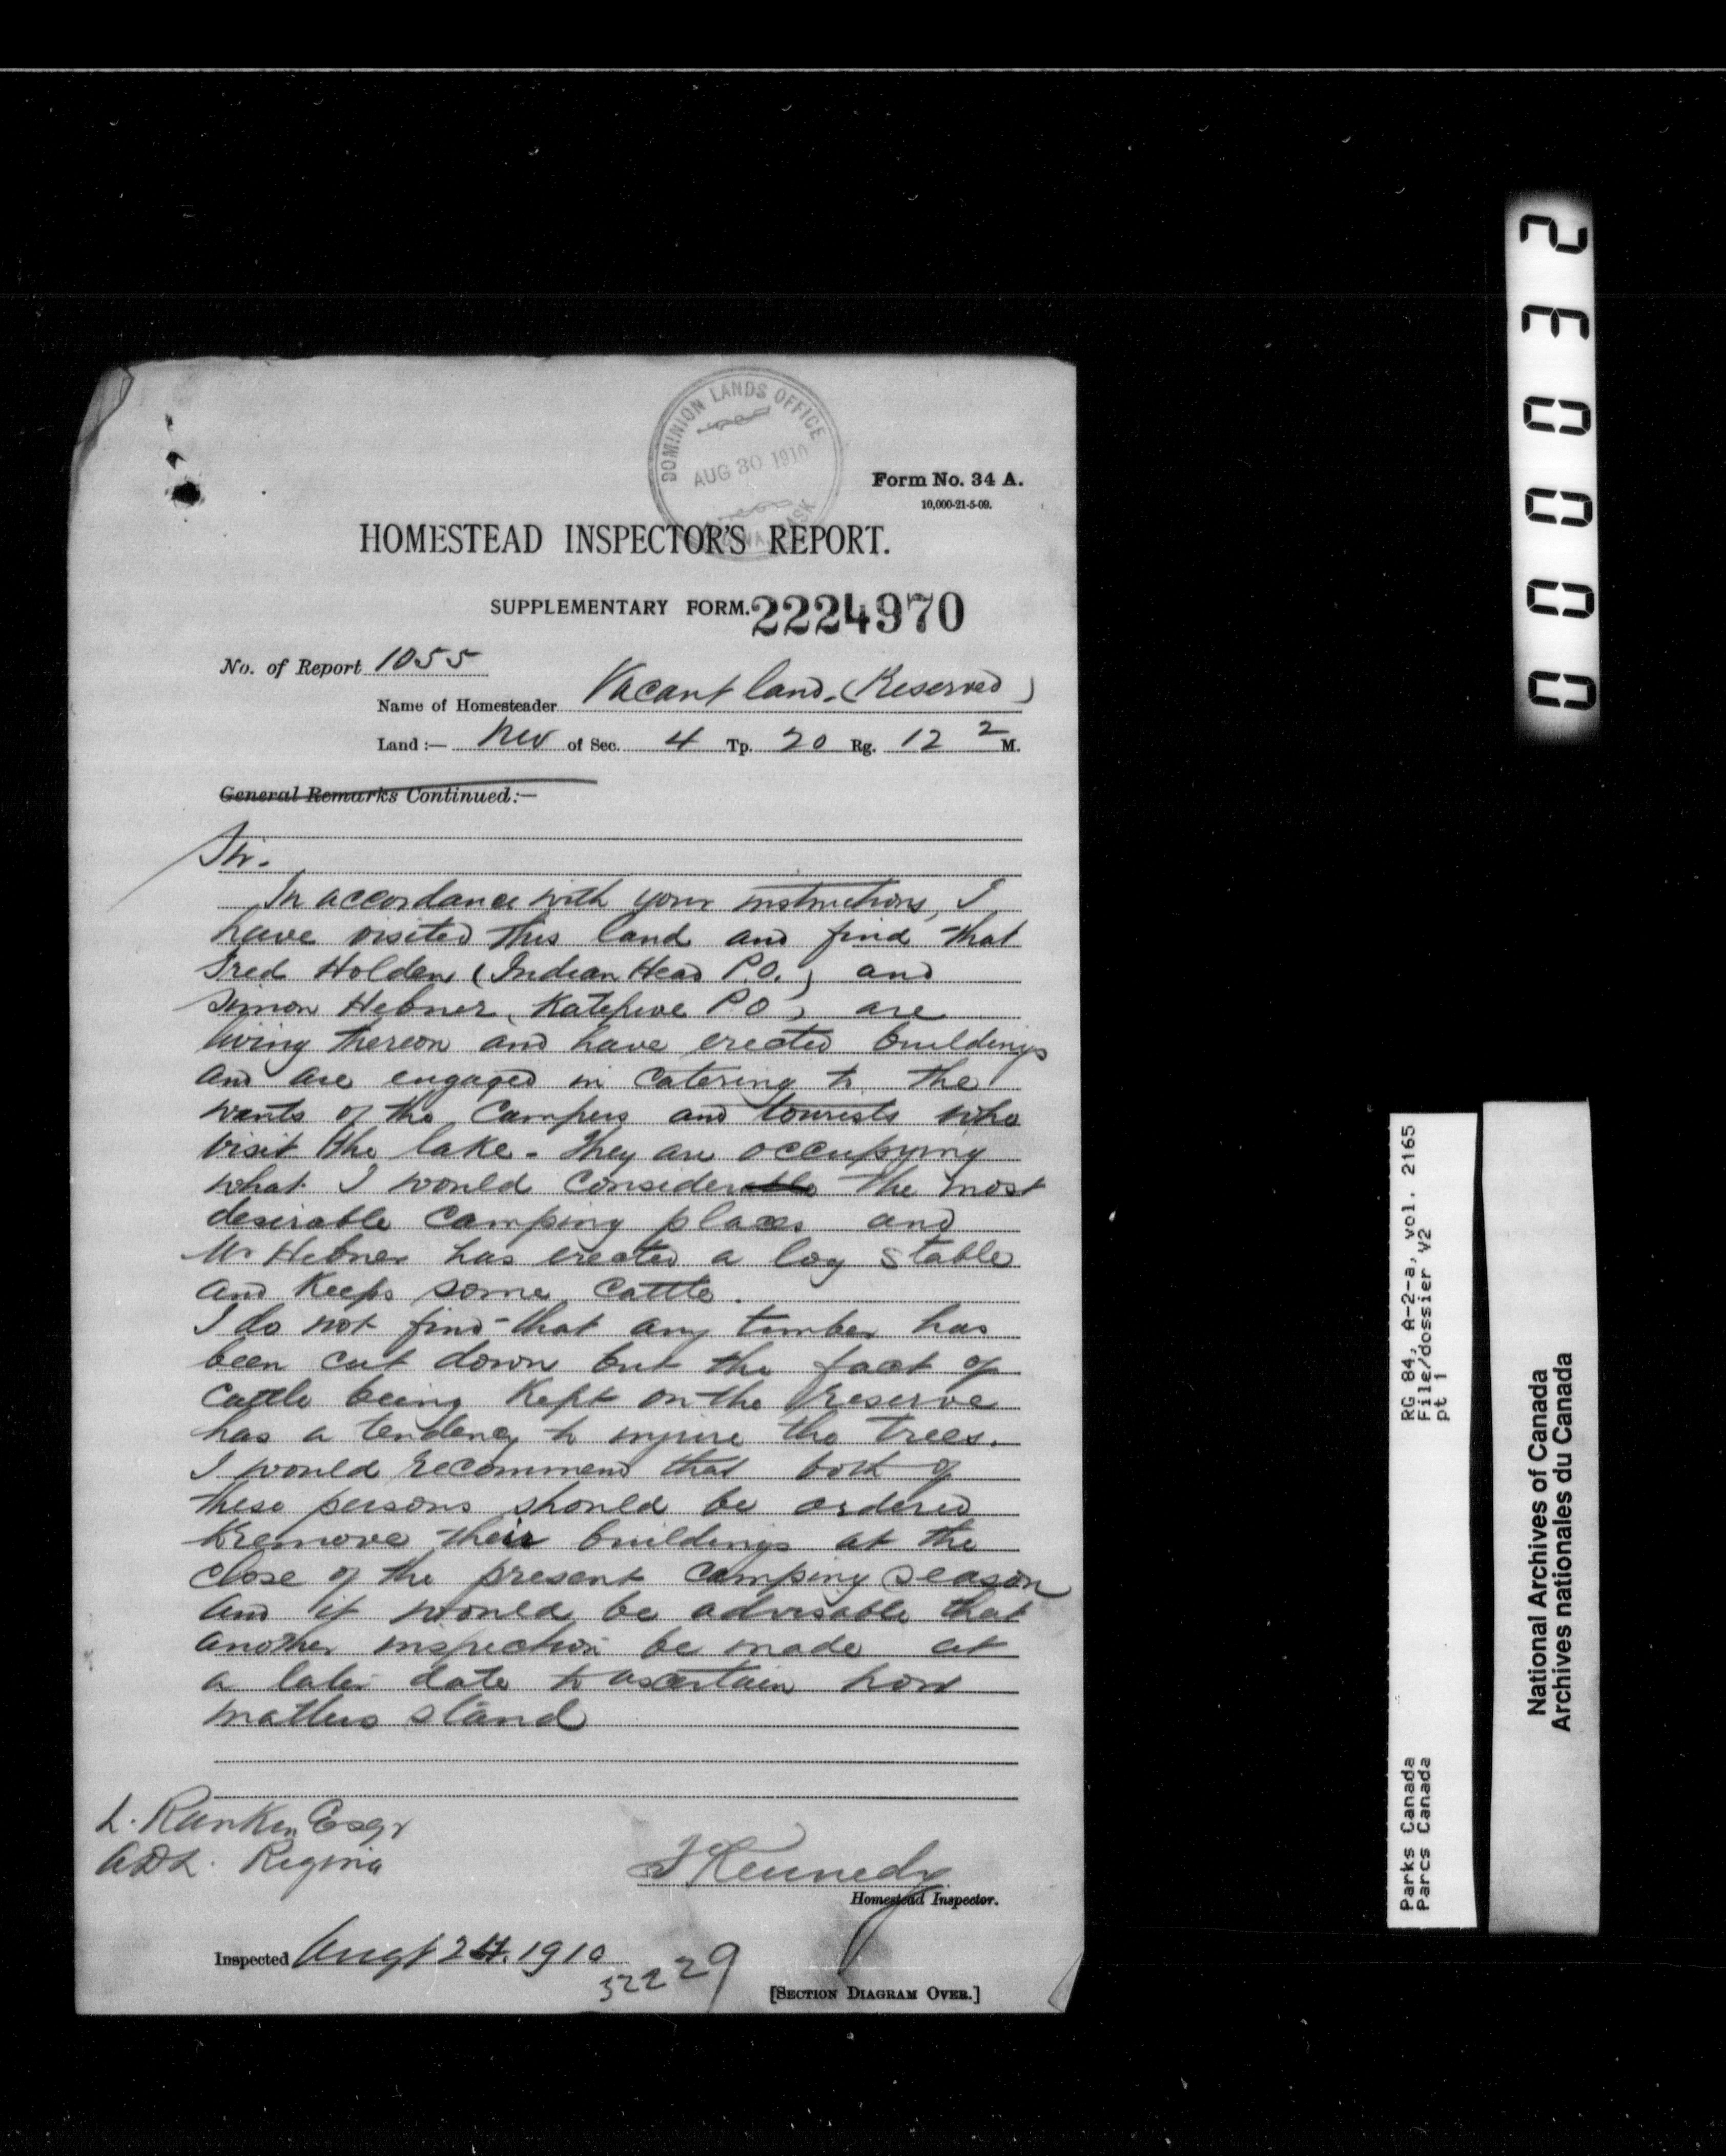 DOMINION LANDS OFFICE
AUG 30 1910
Form No. 34 A.
10,000-21-5-09.
HOMESTEAD INSPECTOR'S REPORT.
SUPPLEMENTARY FORM. 2224970
No. of Report 1055
Name of Homesteader Vacant land. (Reserved)
Land:— NW of Sec. 4 Tp. 20 Rg. 12 2 M.
General Remarks Continued:—
Sir.
In accordance with your instructions, I
have visited this land and find that
Fred Holden (Indian Head P.O.) and
Simon Hebner, Katepwe P.O, are
living thereon and have erected buildings
and are engaged in catering to the
wants of the campers and tourists who
visit the lake. They are occupying
what I would consider the most
desirable camping places and
Mr Hebner has erected a log stable
and keeps some cattle.
I do not find that any timber has
been cut down but the fact of
cattle being kept on the reserve
has a tendency to injure the trees.
I would recommend that both of
these persons should be ordered
to remove their buildings at the
close of the present camping season
and it would be advisable that
another inspection be made at
a later date to ascertain how
matters stand
L. Rankin Esqr
ADL. Regina
Kennedy
Homestead Inspector.
Inspected Augt 24. 1910
52229
[SECTION DIAGRAM OVER.]
000032
RG 84, A-2-a, vol. 2165
File/dossier V2
pt 1
Parks Canada
Parcs Canada
National Archives of Canada
Archives nationales du Canada